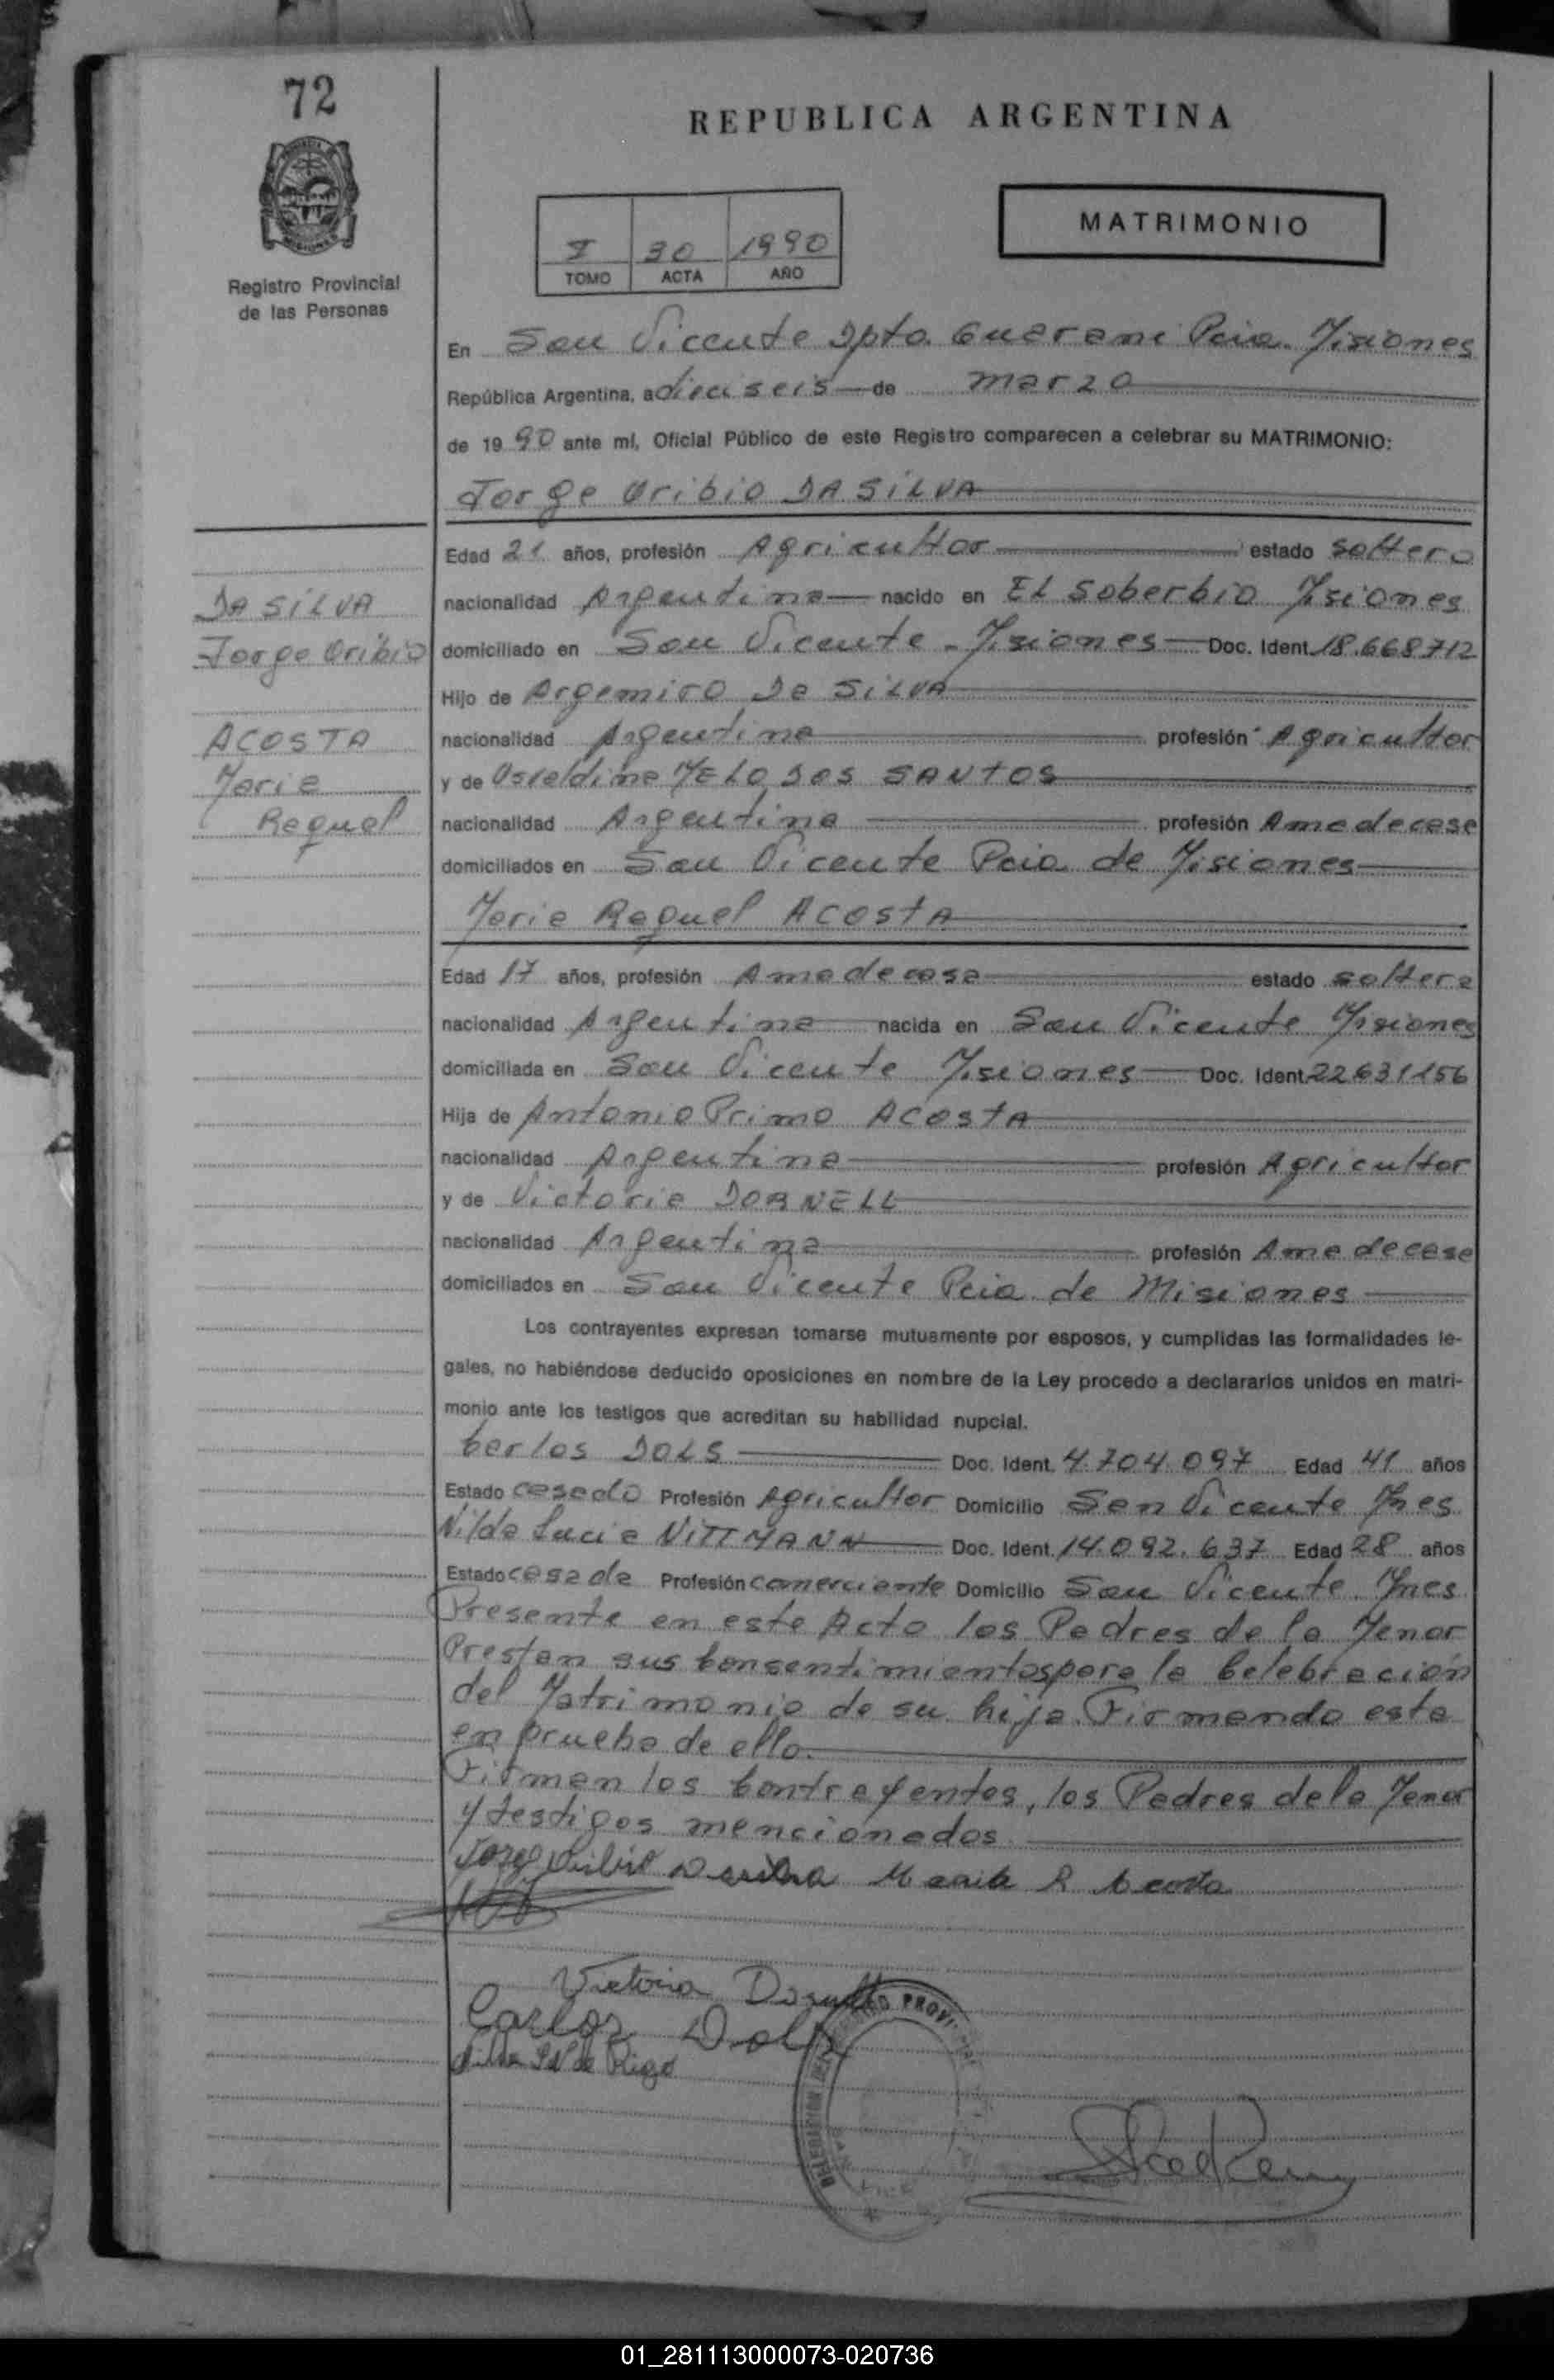 72
REPUBLICA ARGENTINA
MATRIMONIO
I 30 1990
TOMO ACTA AÑO
Registro Provincial
de las Personas
En San Vicente Dpto. Guarani Pcia. Misiones
República Argentina, a dieciseis de marzo
de 1990 ante mí, Oficial Público de este Registro comparecen a celebrar su MATRIMONIO:
Jorge Oribio DA SILVA
Edad 21 años, profesión Agricultor estado soltero
DA SILVA
Jorge Oribio
nacionalidad Argentina nacido en EL Soberbio Misiones
domiciliado en San Vicente - Misiones Doc. Ident. 18.668712
Hijo de Argemiro Da SILVA
ACOSTA
Maria
Raquel
nacionalidad Argentina profesión Agricultor
y de MELO DOS SANTOS
nacionalidad Argentina profesión Ama de casa
domiciliados en San Vicente Pcia de Misiones
Maria Raquel ACOSTA
Edad 17 años, profesión Ama de casa estado soltera
nacionalidad Argentina nacida en San Vicente Misiones
domiciliada en San Vicente Misiones Doc. Ident. 22631156
Hija de Antonio Primo ACOSTA
nacionalidad Argentina profesión Agricultor
y de Victoria DORNELL
nacionalidad Argentina profesión Ama de casa
domiciliados en San Vicente Pcia de Misiones
Los contrayentes expresan tomarse mutuamente por esposos, y cumplidas las formalidades le-
gales, no habiéndose deducido oposiciones en nombre de la Ley procedo a declararlos unidos en matri-
monio ante los testigos que acreditan su habilidad nupcial.
Carlos DOLS Doc. Ident. 4.704.097 Edad 41 años
Estado casado Profesión Agricultor Domicilio San Vicente Mnes
Nilda Lucia NITTMANN Doc. Ident. 14.092.637 Edad 28 años
Estado casada Profesión comerciante Domicilio San Vicente Mnes
Presente en este Acto los Padres de la Menor
Prestan sus Consentimientos para la Celebracion
del Matrimonio de su hija. Firmando esta
en prueba de ello.
Firman los Contrayentes, los Padres de la Menor
y testigos mencionados
Jorge Oribio Dasilva Maria R Acosta
Victoria Dornell
Carlos Dols
Nilda L N de Rigo
01_281113000073-020736